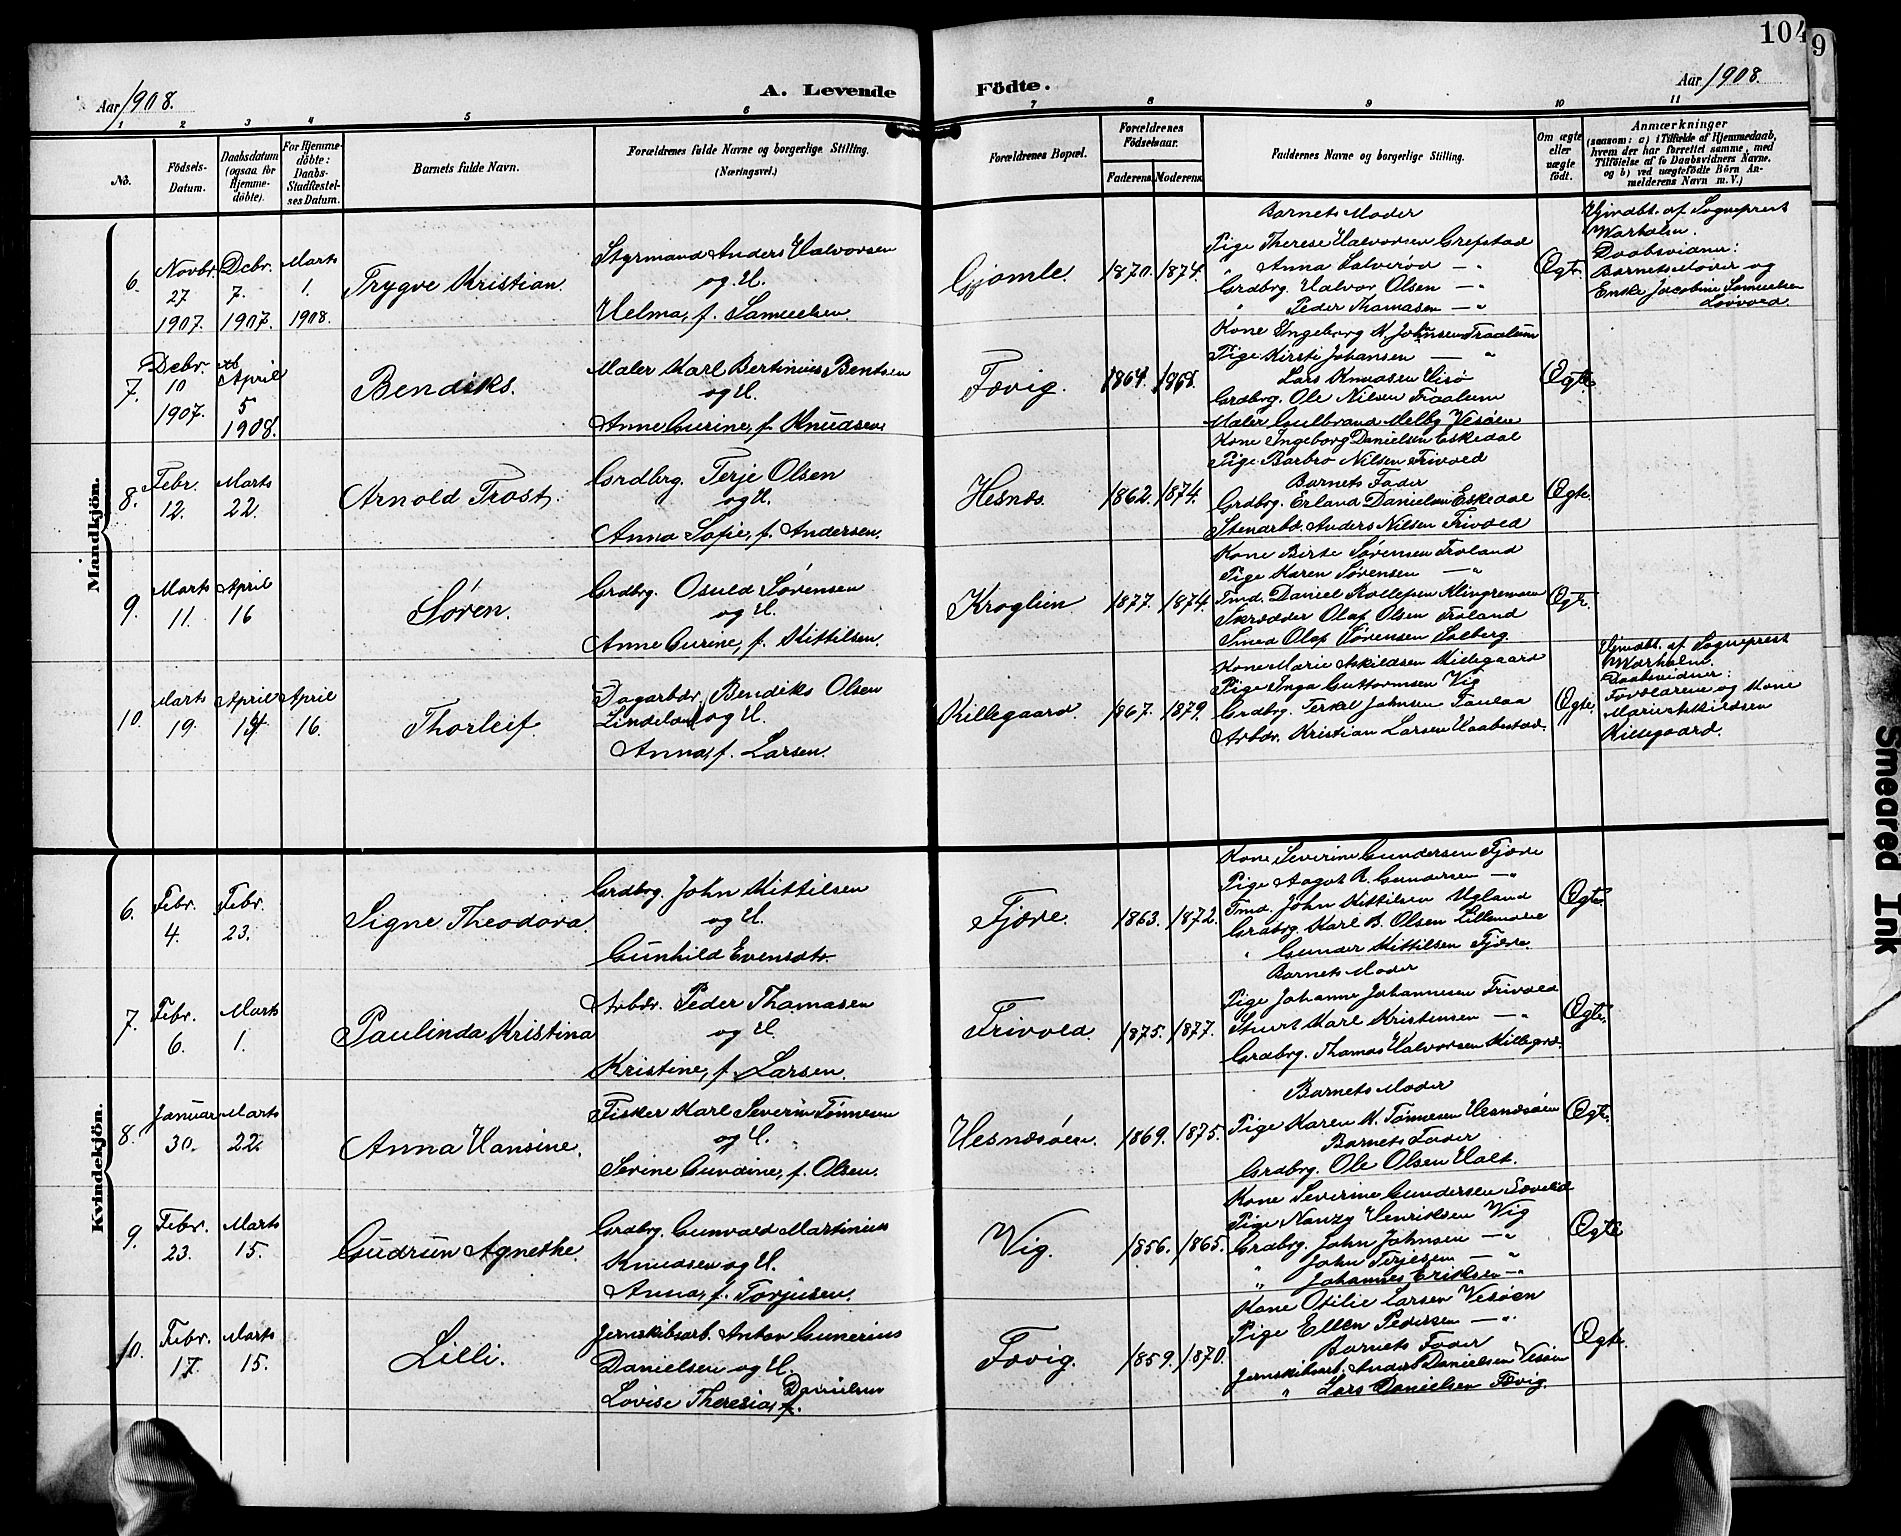 104
9
Aar 1908.
A. Levende Födte.
Aar 1908.
1 2 3 4 5 6 7 8 9 10 11
No.
Födsels-Datum.
Daabsdatum (ogsaa for Hjemme-döbte).
For Hjemme-döbte: Daabs-Stadfæstel-ses Datum.
Barnets fulde Navn.
Forældrenes fulde Navne og borgerlige Stilling.
(Næringsvei.)
Forældrenes Bopæl.
Forældrenes Födselsaar.
Faderens. Moderens.
Faddernes Navne og borgerlige Stilling.
Om ægte eller uægte födt.
Anmærkninger
(saasom: a) i Tilfælde af Hjemmedaab, hvem der har forrettet samme, med Tilföielse af to Daabsvidners Navne. og b) ved uægtefödte Börn An-melderens Navn m. V.)
Mandkjön.
6. Novbr. 27 1907. Dcbr. 7. 1907. Marts 1. 1908.
Trygve Kristian.
Styrmand Anders Halvorsen
og H.
Helma, f. Samuelsen.
Gjømle. 1870. 1874.
Barnets Moder
Pige Therese Halvorsen Grefstad
" Anna Salverød — "
Grdbrg. Halvor Olsen — "
" Peder Thomasen — "
Ægte.
Hjmdbt. af Sogneprest
Warholm.
Daabsvidner:
Barnets Moder og
Enke Jacobine Samuelsen
7. Dcbr. 10 1907. April 5 1908.
Bendiks.
Maler Karl Bertinius Bentsen
og H.
Anne Gurine, f. Knudsen
Fævig. 1864. 1868.
Kone Ingeborg K. Johnsen Traalum
Pige Kirsti Johansen — "
Lars Knudsen Hisø
Grdbrg. Ole Nilsen Traalum
Maler Gulbrand Melby Vesøen
Ægte.
8. Febr. 12. Marts 22.
Arnold Trost.
Grdbrg. Terje Olsen
og H.
Anna Sofie, f. Andersen.
Hesnes. 1862. 1874.
Kone Ingeborg Danielsen Eskedal
Pige Barbro Nilsen Trivold
Barnets Fader
Grdbrg. Erland Danielsen Eskedal
Stenarbd. Anders Nilsen Trivold
Ægte.
9. Marts 11. April 16
Søren.
Grdbrg. Osuld Sørensen
og H.
Anne Gurine, f. Kittilsen.
Kroglien 1877. 1874.
Kone Birte Sørensen Froland
Pige Karen Sørensen — "
Tmd. Daniel Rollefsen Klingremoen
Skrædder Olaf Olsen Froland
Smed Olaf Sørensen Solberg
Ægte.
10. Marts 19. April 14. April 16.
Thorleif.
Dagarbdr. Bendiks Olsen
og H.
Anna, f. Larsen.
Killegaard. 1867. 1879.
Kone Marie Askildsen Killegaard
Pige Inga Guttormsen Vig
Grdbrg. Terkel Johnsen
Arbdr. Kristian Larsen Haabestad.
Ægte.
Hjmdbt. af Sogneprest
Warholm.
Daabsvidner:
Forældrene og Kone
Marie Askildsen
Killegaard.
Kvindekjön.
6. Febr. 4. Febr. 23.
Signe Theodora.
Grdbrg. John Kittilsen
og H.
Gunhild Evensdtr.
Fjære. 1863. 1872.
Kone Severine Gundersen Fjære
Pige Aagot R. Gundersen — "
Tmd. John Kittilsen Ugland
Grdbrg. Karl B. Olsen Lillemoie
" Gunder Kittilsen Fjære.
Ægte.
7. Febr. 6. Marts 1.
Paulinda Kristina
Arbdr. Peder Thomasen
og H.
Kristine, f. Larsen.
Trivold. 1875. 1877.
Barnets Moder
Pige Johanne Johannesen Trivold
Stuert Karl Kristensen — "
Grdbrg. Thomas Halvorsen Killegrd.
Ægte.
8. Januar 30. Marts 22.
Anna Hansine.
Fisker Karl Severin Tønnesen
og H.
Serine Gurdine, f. Olsen.
Hesnesøen. 1869. 1875.
Barnets Moder
Pige Karen K. Tønnesen Hesnesøen
Barnets Fader
Grdbrg. Ole Olsen Halt.
Ægte.
9. Febr. 23. Marts 15.
Gudrun Agnethe.
Grdbrg. Gunvald Martinius
Knudsen og H.
Anna, f. Torjusen.
Vig. 1856. 1865.
Kone Severine Gundersen
Pige Nanzy Henriksen Vig
Grdbrg. John Johnsen — "
" John Terjesen — "
" Johannes Eriksen — "
Ægte
10. Febr. 17. Marts 15.
Lilli.
Jernskibsarb. Anton Gunerius
Danielsen og H.
Lovise Theresia, f. Danielsen
Fævig. 1859. 1870.
Kone Otilie Larsen Vesøen
Pige Ellen Pedersen — "
Barnets Fader
Jernskibsarb. Anders Danielsen Vesøen
" Lars Danielsen Fævig.
Ægte.
Smeared Ink